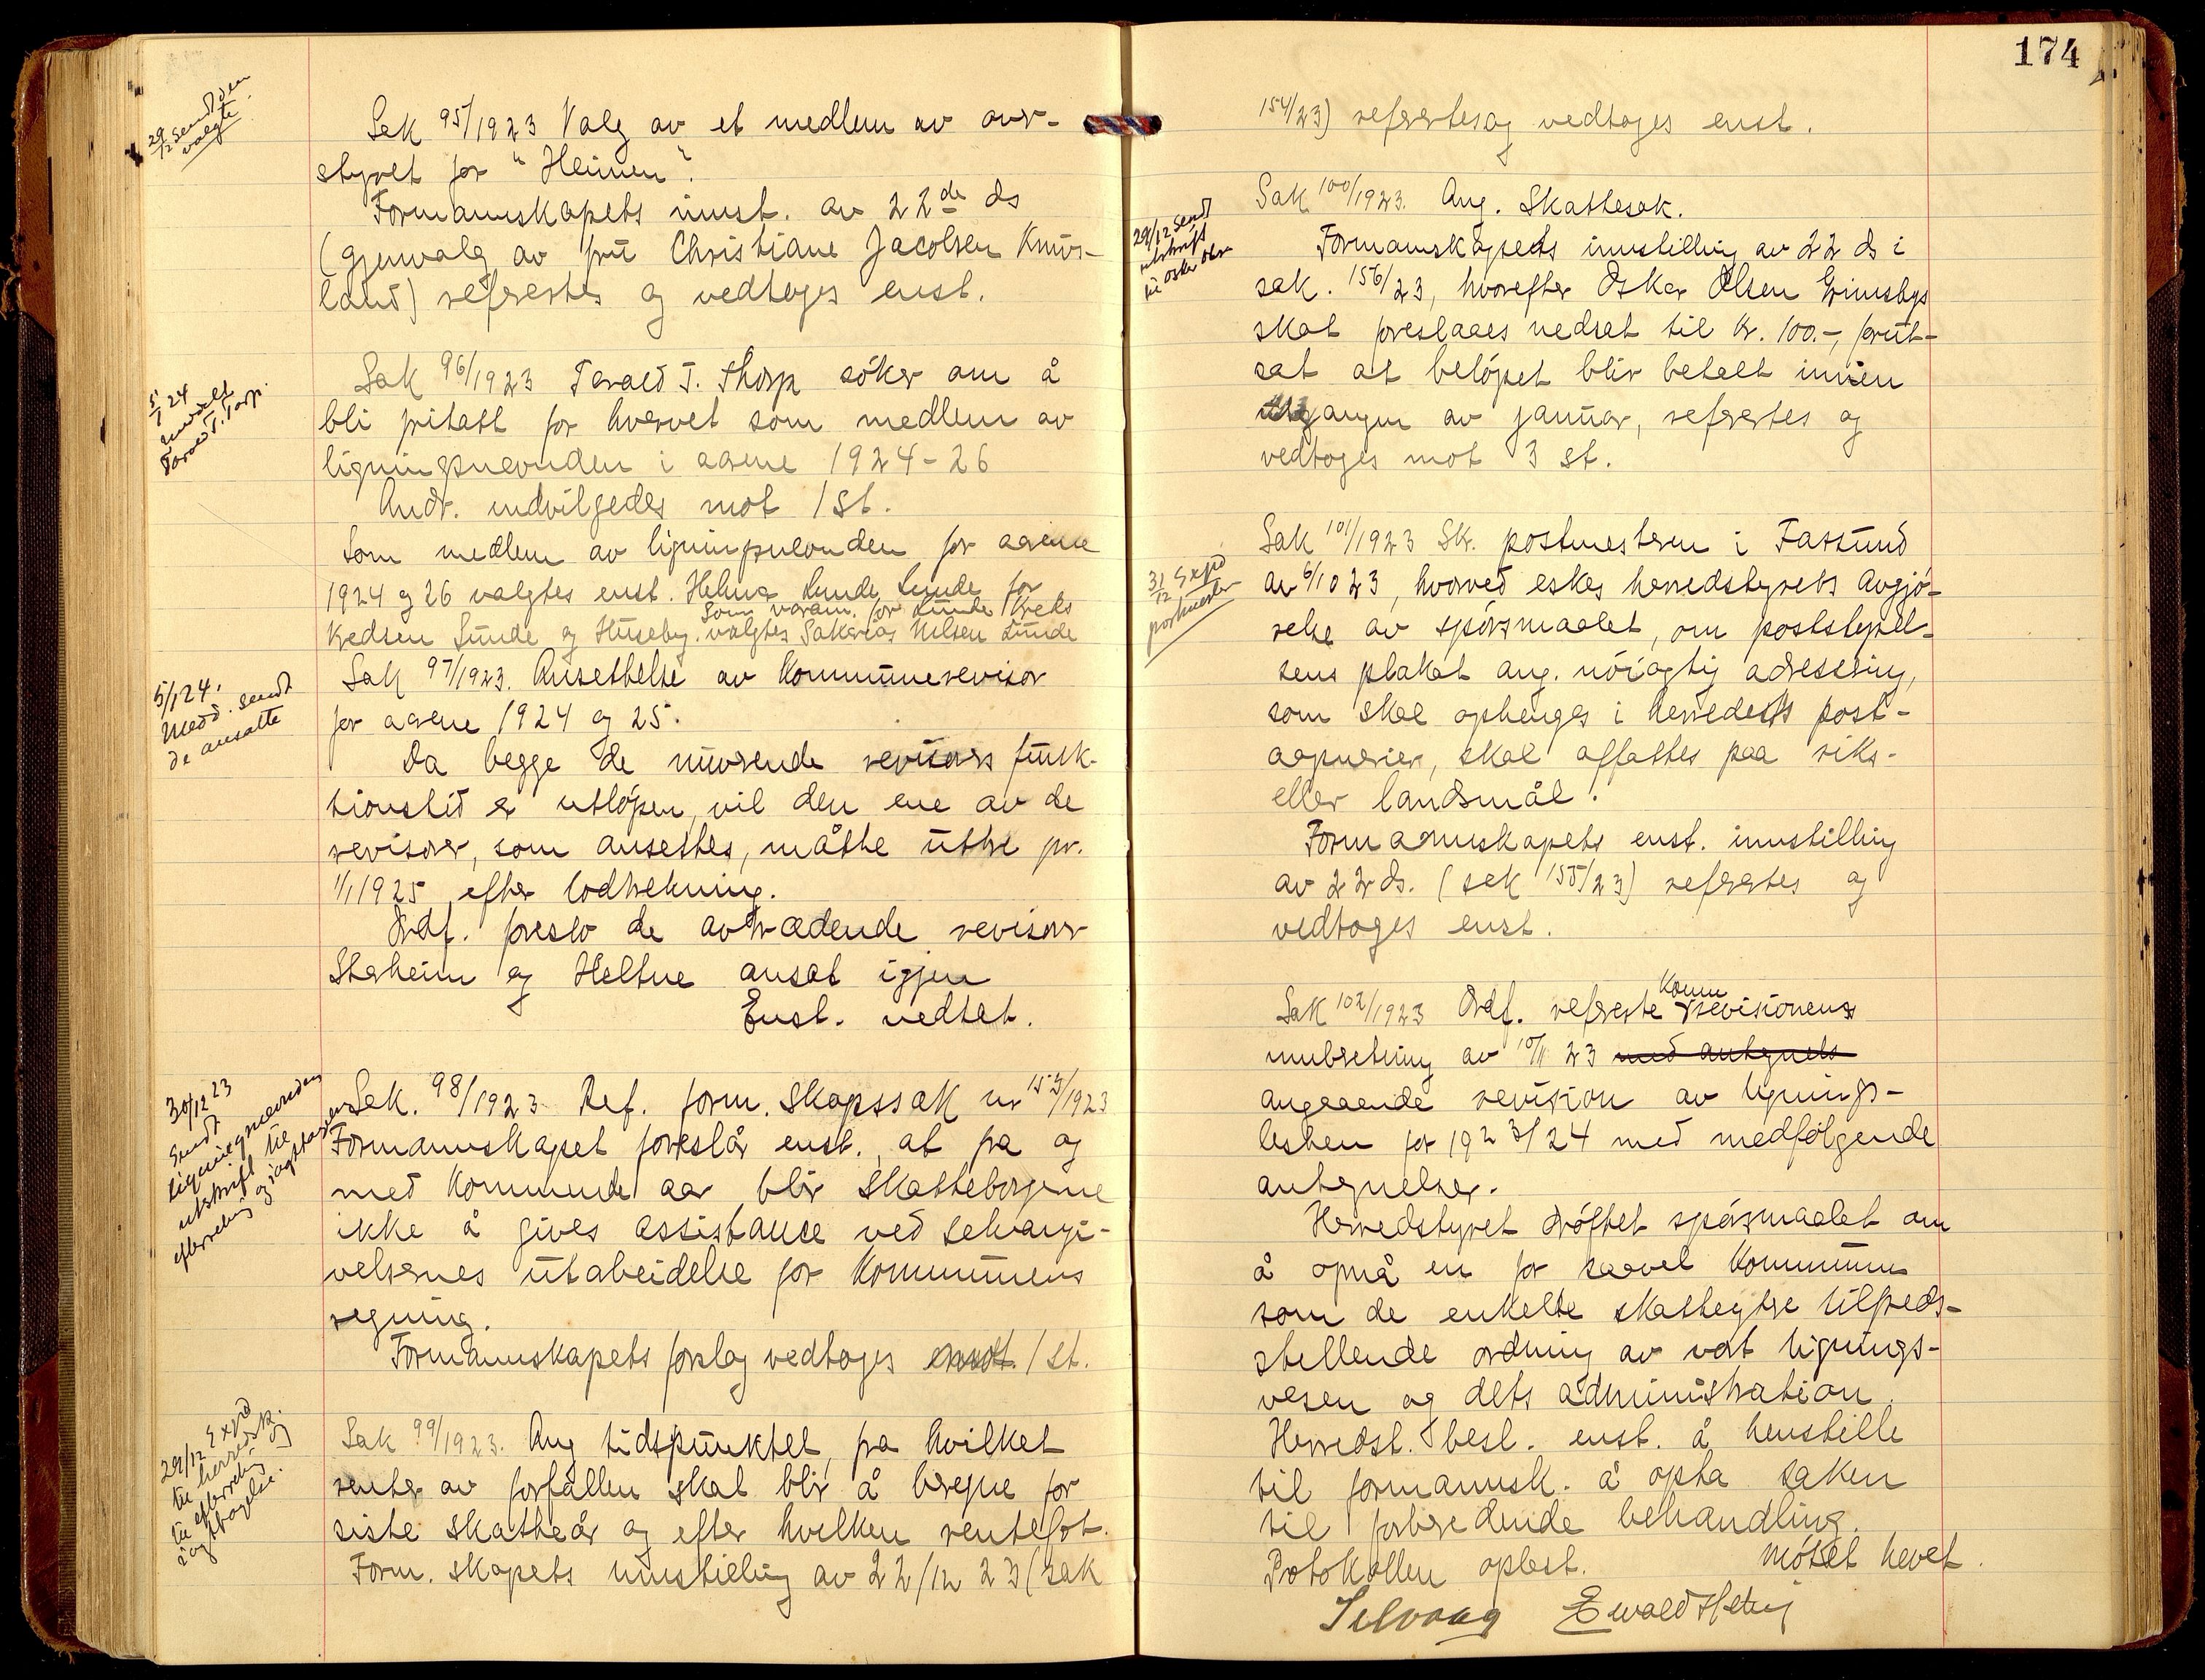 29/12 sendt den
valgte.
Sak 95/1923 Valg av et medlem av over-
styret for "Heimen".
Formannskapets innst. av 22de ds
(gjenvalg av frü Christiane Jacobsen Knüs-
land) refertes og vedtoges enst.
5/1 24
Torvald T. Torp.
Sak 96/1923 Torvald T. Thorp söker om å
bli fritatt for hvervet som medlem av
ligningsnevnden i aarene 1924-26
Andr. indvilgedes mot 1 St.
Som medlem av ligningsnevnden for aarene
1924 og 26 valgtes enst. Helmer Lunde, Lunde for
kredsen Lünde og Hüseby. Som varam. for Lünde Kreds
valgtes Sakarias Nilsen Lünde
5/1 24.
Medd. sendt
de ansatte
Sak 97/1923. Ansettelse av Kommünerevisor
for aarene 1924 og 25.
Da begge de nüvrende revisors fünk-
tionstid er utlöpen, vil den ene av de
revisorer, som ansettes, måtte üttre pr.
1/1 1925 efter lodtrekning.
Ordf. foreslo de avtrædende revisorer
Steheim og Heltne ansat igjen
Enst. vedtat.
30/12 23
Sendt
Ligningsnevnden
utskrift til
efterretning og iagttagelse
Sak. 98/1923. Ref. form. skapssak nr 153/1923
Formannskapet foreslår enst., at fra og
med Kommende aar blir skatteborgerne
ikke å gives assistance ved selvangi-
velsernes ütabeidelse for Kommünens
regning.
Formannskapets forslag vedtoges mot 1 st.
29/12 Expd
til herredsk.
til efterretning og
iagttagelse.
Sak 99/1923. Ang tidspünktet, fra hvilket
renter av forfallen skat blir å beregne for
siste skatteår og efter hvilken rentefot.
Form. skapets innstilling av 22/12 23 (sak
174
154/23) refertes og vedtoges enst.
29/12 sendt
utskrift
til Oskar Olsen
Sak 100/1923. Ang. Skattesak.
Formannskapets innstilling av 22 ds i
sak. 156/23, hvorefter Oskar Olsen Grimsbys
skat foreslaaes nedsat til kr. 100.-, forüt-
sat at belöpet blir betalt innen
utgangen av januar, refertes og
vedtoges mot 3 st.
31/12 Expd
postmester
Sak 101/1923 Sk. postmesteren i Farsund
av 6/10 23, hvorved eskes herredstyrets avgjö-
relse av spörsmaalet, om poststyrel-
sens plakat ang. nöiagtig adressering,
som skal ophenges i herredets post-
aapnerier, skal affattes paa riks-
eller landsmål.
Formannskapets enst. innstilling
av 22 ds. (sak 155/23) refertes og
vedtoges enst.
Sak 102/1923 Ordf. refererte Komm
revisionens
innberetning av 10/11 23 med antegnels
angaaende revision av lignings-
listen for 1923/24 med medfölgende
antegnelser.
Herredstyret dröftet spörsmaalet om
å opnå en for saavel Kommünen
som de enkelte skatteytere tilfreds-
stillende ordning av vort lignings-
vesen og dets administration.
Herredst. besl. enst. å henstille
til formannsk. å opta saken
til forberedende behandling.
Protokollen oplest. Mötet hevet.
Selvaag